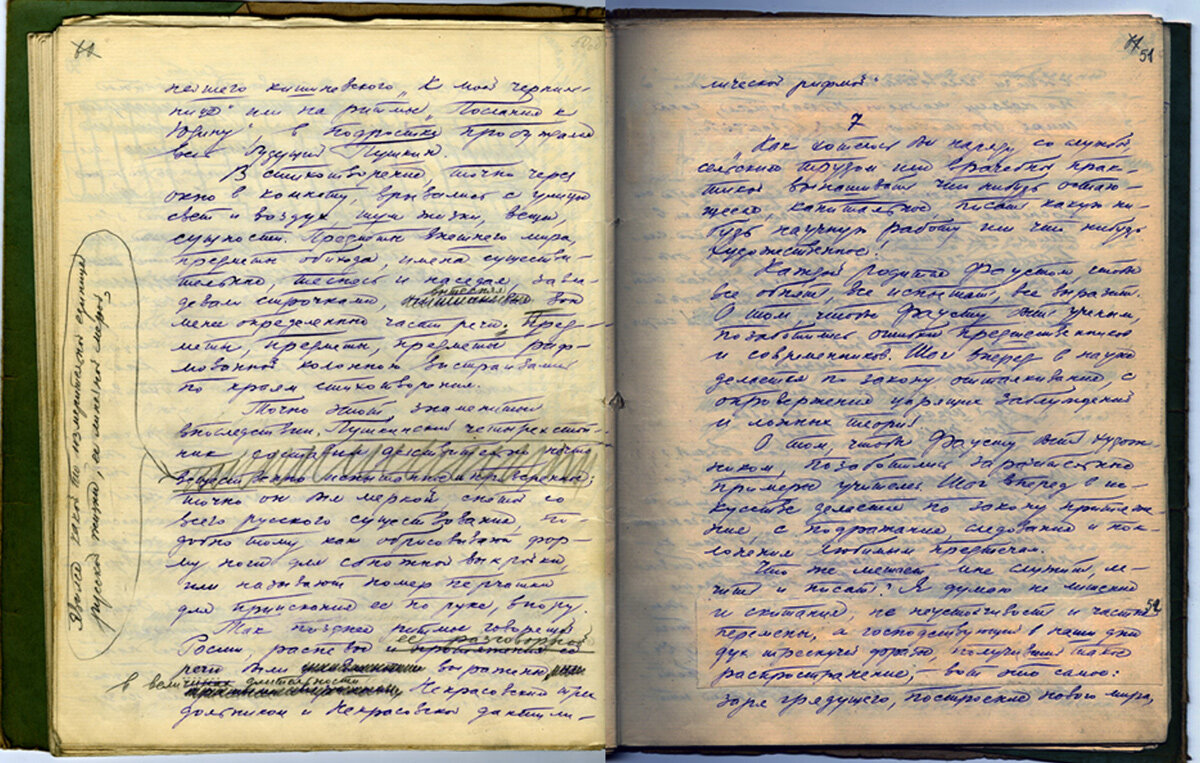 11
нейшего кишиневского „К моей черниль-
нице" или на ритмы „Послания к
Юдину", в подростке пробуждался
весь будущий Пушкин.
В стихотворение, точно через
окно в комнату, врывались с улицы
свет и воздух, шум жизни, вещи,
сущности. Предметы внешнего мира,
предметы обихода, имена существи-
тельные, теснясь и наседая, завла-
девали строчками, вытесняя вон
менее определенные части речи. Пред-
меты, предметы, предметы риф-
мованной колонною выстраивались
по краям стихотворения.
Точно этот, знаменитый
впоследствии, Пушкинский четырехстоп-
ник,
явился какой то измерительной единицей
русской жизни, ее линейной мерой
точно он был меркой, снятой со
всего русского существования, по-
добно тому как обрисовывают фор-
му ноги для сапожной выкройки,
или называют номер перчатки
для приискания ее по руке, впору.
Так позднее ритмы говорящей
России, распевы ее разговорной
речи были выражены
в величинах длительности Некрасовским трех-
дольником и Некрасовской дактили-
11
51
ческой рифмой"
7
„Как хотелось бы наряду со службой,
сельским трудом или врачебной прак-
тикой вынашивать что нибудь остаю-
щееся, капитальное, писать какую ни-
будь научную работу или что нибудь
художественное.
Каждый родится Фаустом, чтобы
все обнять, все испытать, все выразить.
О том, чтобы Фаусту быть ученым,
позаботились ошибки предшественников
и современников. Шаг вперед в науке
делается по закону отталкивания, с
опровержения царящих заблуждений
и ложных теорий.
О том, чтобы Фаусту быть худож-
ником, позаботились заразительные
примеры учителей. Шаг вперед в ис-
кусстве делается по закону притяже-
ния, с подражания, следования и пок-
лонения любимым предтечам.
Что же мешает мне служить, ле-
чить и писать? Я думаю не лишения
и скитания, не неустойчивость и частые
52
перемены, а господствующий в наши дни
дух трескучей фразы, получивший такое
распространение; вот это самое:
заря грядущего, построение нового мира,